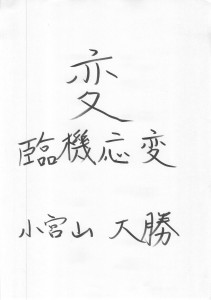 変
臨機応変
小宮山 大勝